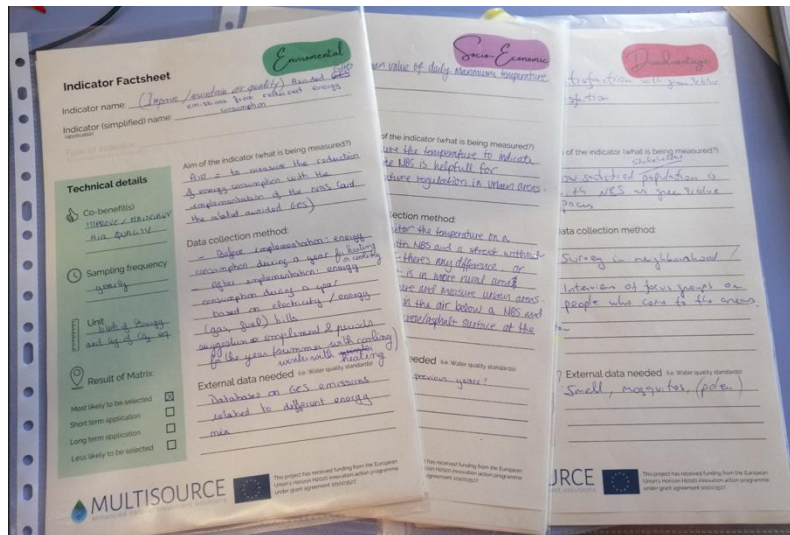 Enviromental
Indicator Factsheet
Indicator name: (Improve / maintain air quality) Avoided GES
emissions from reduced energy
consumption
Indicator (simplified) name:
Technical details
Co-benefit(s)
IMPROVE / MAINTAIN
AIR QUALITY
Sampling frequency
yearly
Unit
of energy
and kg of CO2 eq
Result of Matrix:
Most likely to be selected
Short term application
Long term application
Less likely to be selected
Aim of the indicator (what is being measured?)
Aim = to measure the reduction
of energy consumption with the
implementation of the NBS (and
the related avoided GES)
Data collection method:
- Before implementation: energy
consumption during a year for heating
& cooling
- After implementation: energy
consumption during a year
based on electricity / energy
(gas, fuel) bills
suggestion to implement 2 periods
for the year (summer with cooling)
winter with heating
External data needed (i.e. Water quality standards)
Databases on GES emissions
related to different energy
mix
MULTISOURCE
This project has received funding from the European
Union's Horizon H2020 innovation action programme
under grant agreement 101003527
Socio-Economic
value of daily Maximum temperature
of the indicator (what is being measured?)
the temperature to indicate
NBS is helpfull for
regulation in urban areas.
collection method:
the temperature on a
NBS and a street without
there's any difference, or
is in more rural areas
and measure urban areas.
the air below a NBS and
/asphalt surface at the
needed (i.e. Water quality standards)
previous years?
has received funding from the European
Horizon H2020 innovation action programme
agreement 101003527
Disadvantage
with green & blue
(what is being measured?)
stakeholders
satisfied population is
with NBS or green & blue
data collection method:
Survey in neighbourhood /
Interview of focus groups or
people who come to the areas.
External data needed (i.e. Water quality standards)
Smell, mosquitos, (polen)
URCE
This project has received funding from the European
Union's Horizon H2020 innovation action programme
under grant agreement 101003527